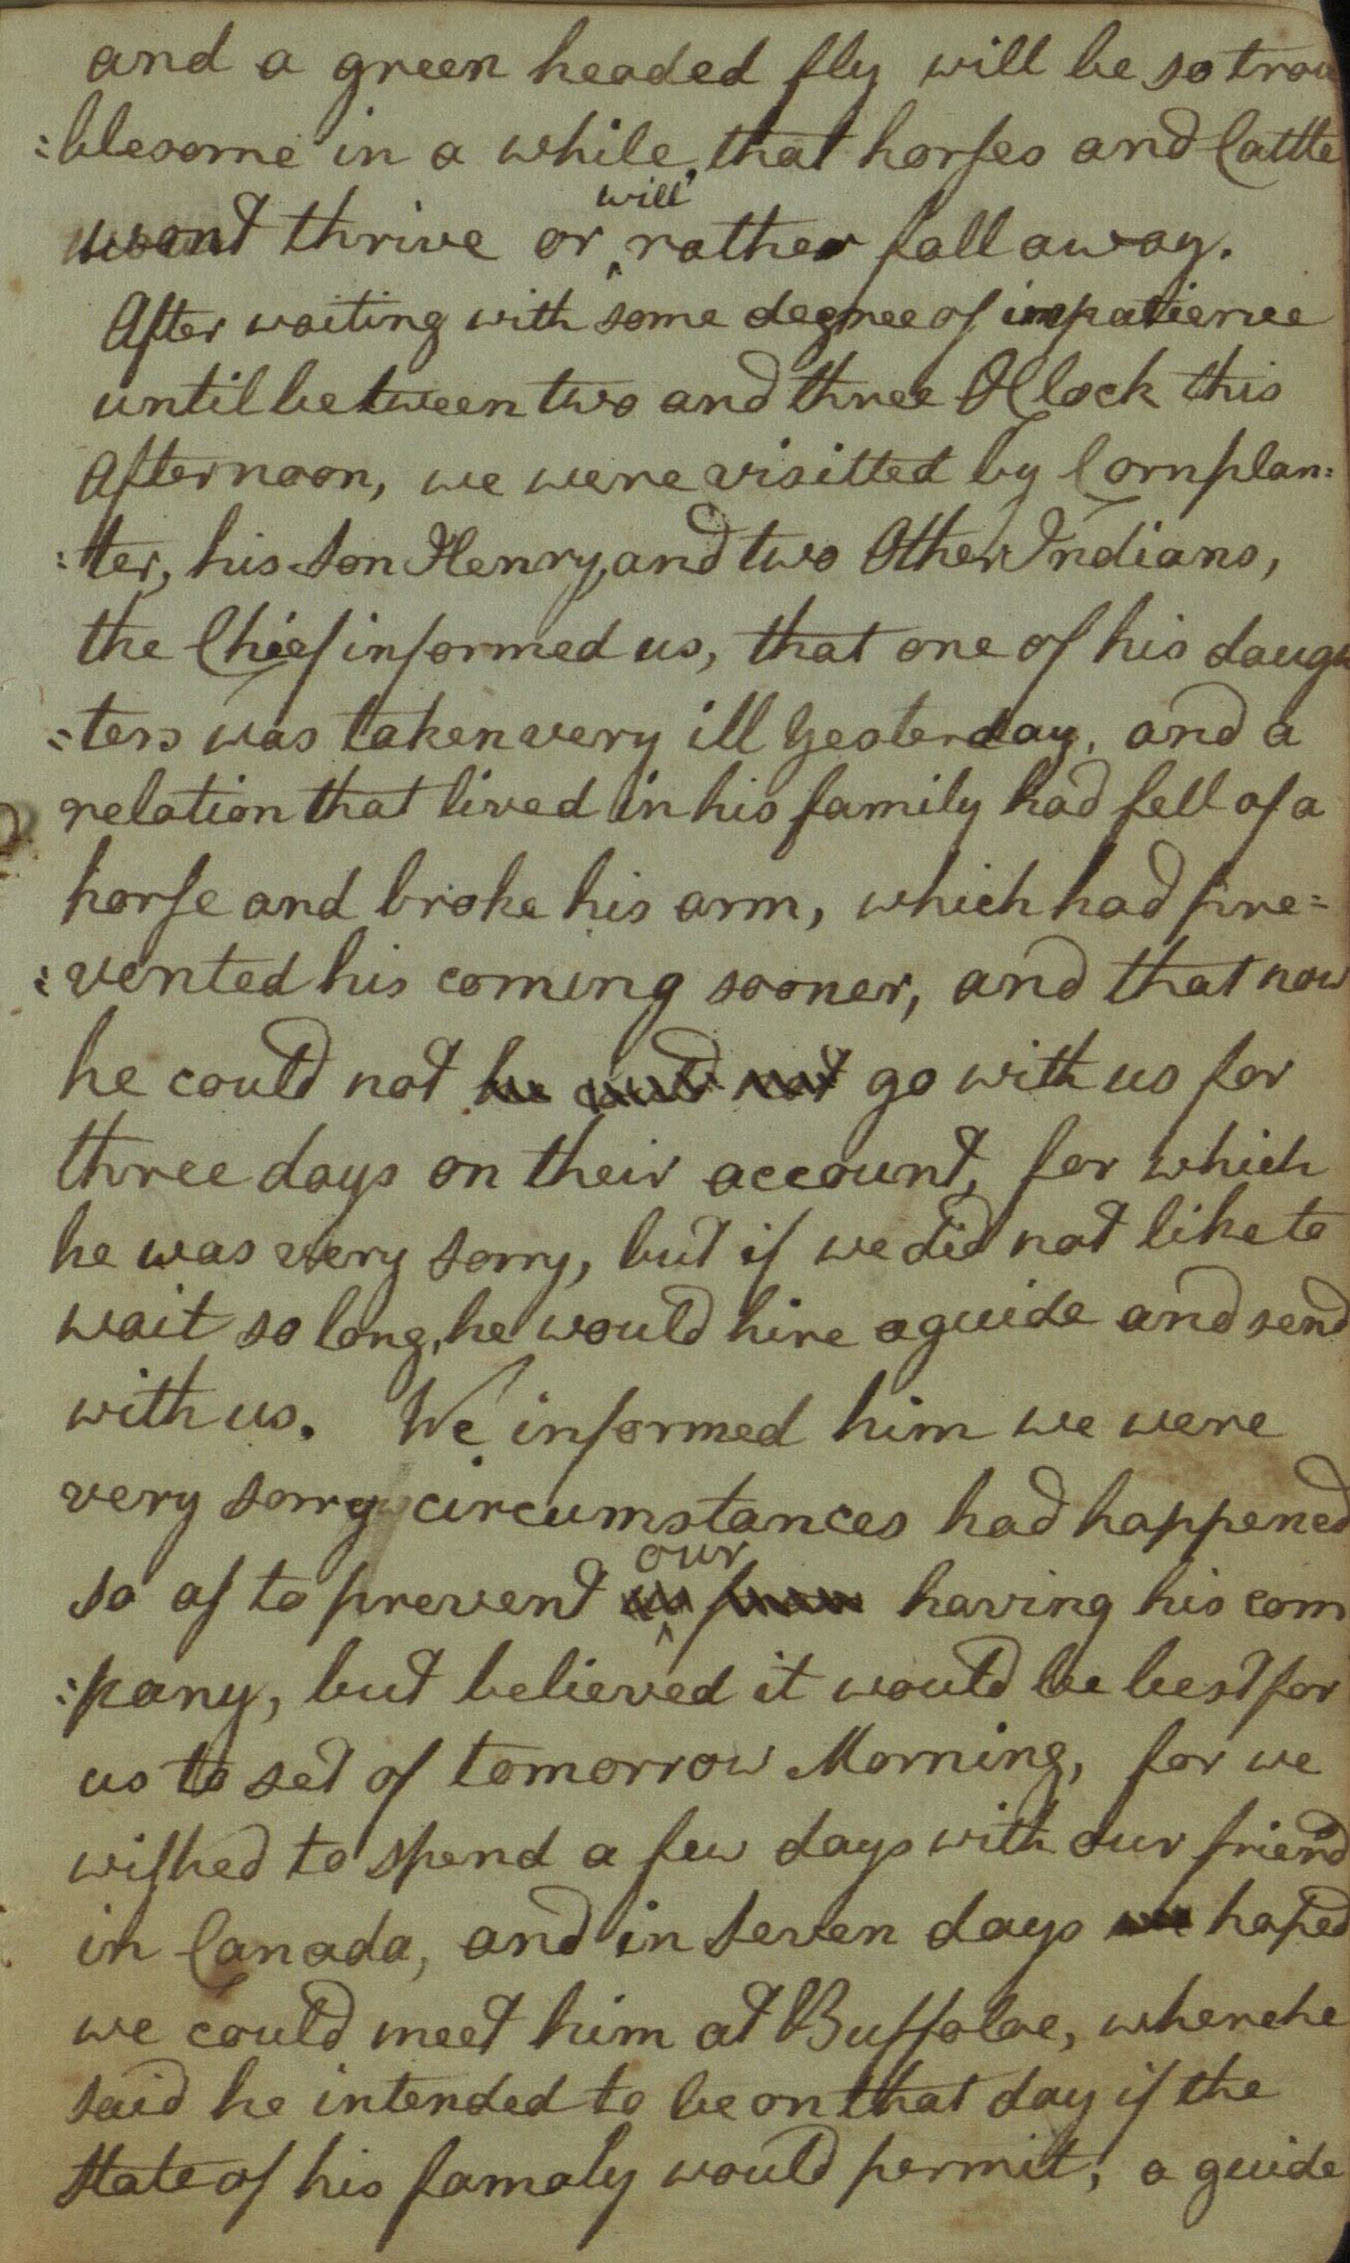 and a green headed fly will be so trou
:blesome in a while, that horses and Cattle
wont thrive or will rather fall away.
After waiting with some degree of impatience
until between two and three OClock this
Afternoon, we were visitted by Cornplan:
:ter, his Son Henry, and two Other Indians,
the Chief informed us, that one of his daugh
:ters was taken very ill Yesterday, and a
relation that lived in his family had fell of a
horse and broke his arm, which had pre=
:vented his coming sooner, and that now
he could not he could not go with us for
three days on their account, for which
he was very sorry, but if we did not like to
wait so long, he would hire a guide and send
with us. We informed him we were
very sorry circumstances had happened
so as to prevent our having his com
:pany, but believed it would be best for
us to set of tomorrow Morning, for we
wished to spend a few days with our friend
in Canada, and in Seven days we hoped
we could meet him at Buffaloe, where he
said he intended to be on that day if the
State of his famaly would permit, a guide